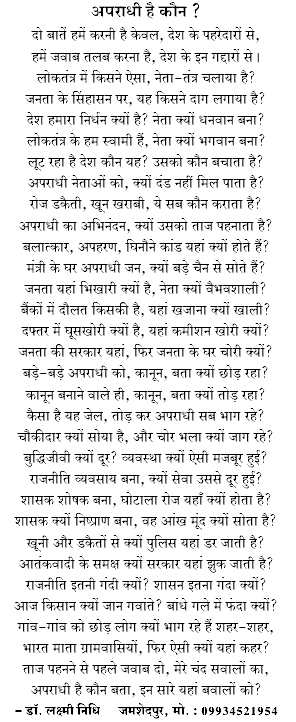 अपराधी है कौन ?
दो बातें हमें करनी है केवल, देश के पहरेदारों से,
हमें जवाब तलब करना है, देश के इन गद्दारों से।
लोकतंत्र में किसने ऐसा, नेता-तंत्र चलाया है?
जनता के सिंहासन पर, यह किसने दाग लगाया है?
देश हमारा निर्धन क्यों है? नेता क्यों धनवान बना?
लोकतंत्र के हम स्वामी हैं, नेता क्यों भगवान बना?
लूट रहा है देश कौन यह? उसको कौन बचाता है?
अपराधी नेताओं को, क्यों दंड नहीं मिल पाता है?
रोज डकैती, खून खराबी, ये सब कौन कराता है?
अपराधी का अभिनंदन, क्यों उसको ताज पहनाता है?
बलात्कार, अपहरण, घिनौने कांड यहां क्यों होते हैं?
मंत्री के घर अपराधी जन, क्यों बड़े चैन से सोते हैं?
जनता यहां भिखारी क्यों है, नेता क्यों वैभवशाली?
बैंकों में दौलत किसकी है, यहां खजाना क्यों खाली?
दफ्तर में घूसखोरी क्यों है, यहां कमीशन खोरी क्यों?
जनता की सरकार यहां, फिर जनता के घर चोरी क्यों?
बड़े-बड़े अपराधी को, कानून, बता क्यों छोड़ रहा?
कानून बनाने वाले ही, कानून, बता क्यों तोड़ रहा?
कैसा है यह जेल, तोड़ कर अपराधी सब भाग रहे?
चौकीदार क्यों सोया है, और चोर भला क्यों जाग रहे?
बुद्धिजीवी क्यों दूर? व्यवस्था क्यों ऐसी मजबूर हुई?
राजनीति व्यवसाय बना, क्यों सेवा उससे दूर हुई?
शासक शोषक बना, घोटाला रोज यहाँ क्यों होता है?
शासक क्यों निष्प्राण बना, वह आंख मूंद क्यों सोता है?
खूनी और डकैतों से क्यों पुलिस यहां डर जाती है?
आतंकवादी के समक्ष क्यों सरकार यहां झुक जाती है?
राजनीति इतनी गंदी क्यों? शासन इतना गंदा क्यों?
आज किसान क्यों जान गवांते? बांधे गले में फंदा क्यों?
गांव-गांव को छोड़ लोग क्यों भाग रहे हैं शहर-शहर,
भारत माता ग्रामवासिनी, फिर ऐसी क्यों यहां कहर?
ताज पहनने से पहले जवाब दो, मेरे चंद सवालों का,
अपराधी है कौन बता, इन सारे यहां बवालों को?
- डॉ. लक्ष्मी निधि जमशेदपुर, मो. : 09934521954